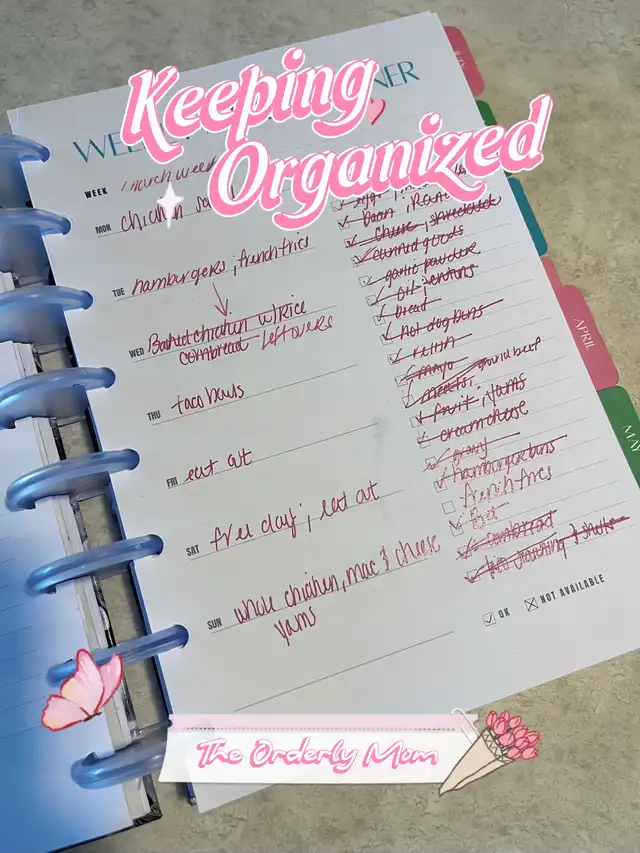 Keeping
Organized
WEEK
NER
WEEK 1 march week
MON chicken
TUE hamburgers ; french fries
WED Baked chicken w/Rice
cornbread leftovers
THU taco bowls
FRI eat out
SAT free day ; eat out
SUN whole chicken, mac & cheese
yams
cheese, shredded
canned goods
garlic powder
bread
hot dog buns
mayo
meats: ground beef
fruit ; yams
cream cheese
gravy
hamburger buns
french fries
cornbread
OK
NOT AVAILABLE
APRIL
MAY
The Orderly Mom